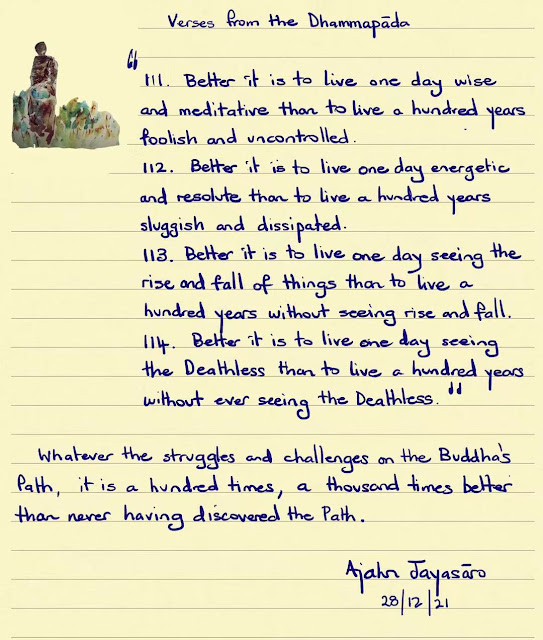 Verses from the Dhammapāda
"111. Better it is to live one day wise
and meditative than to live a hundred years
foolish and uncontrolled.
112. Better it is to live one day energetic
and resolute than to live a hundred years
sluggish and dissipated.
113. Better it is to live one day seeing the
rise and fall of things than to live a
hundred years without seeing rise and fall.
114. Better it is to live one day seeing
the Deathless than to live a hundred years
without ever seeing the Deathless."
Whatever the struggles and challenges on the Buddha's
Path, it is a hundred times, a thousand times better
than never having discovered the Path.
Ajahn Jayasāro
28/12/21